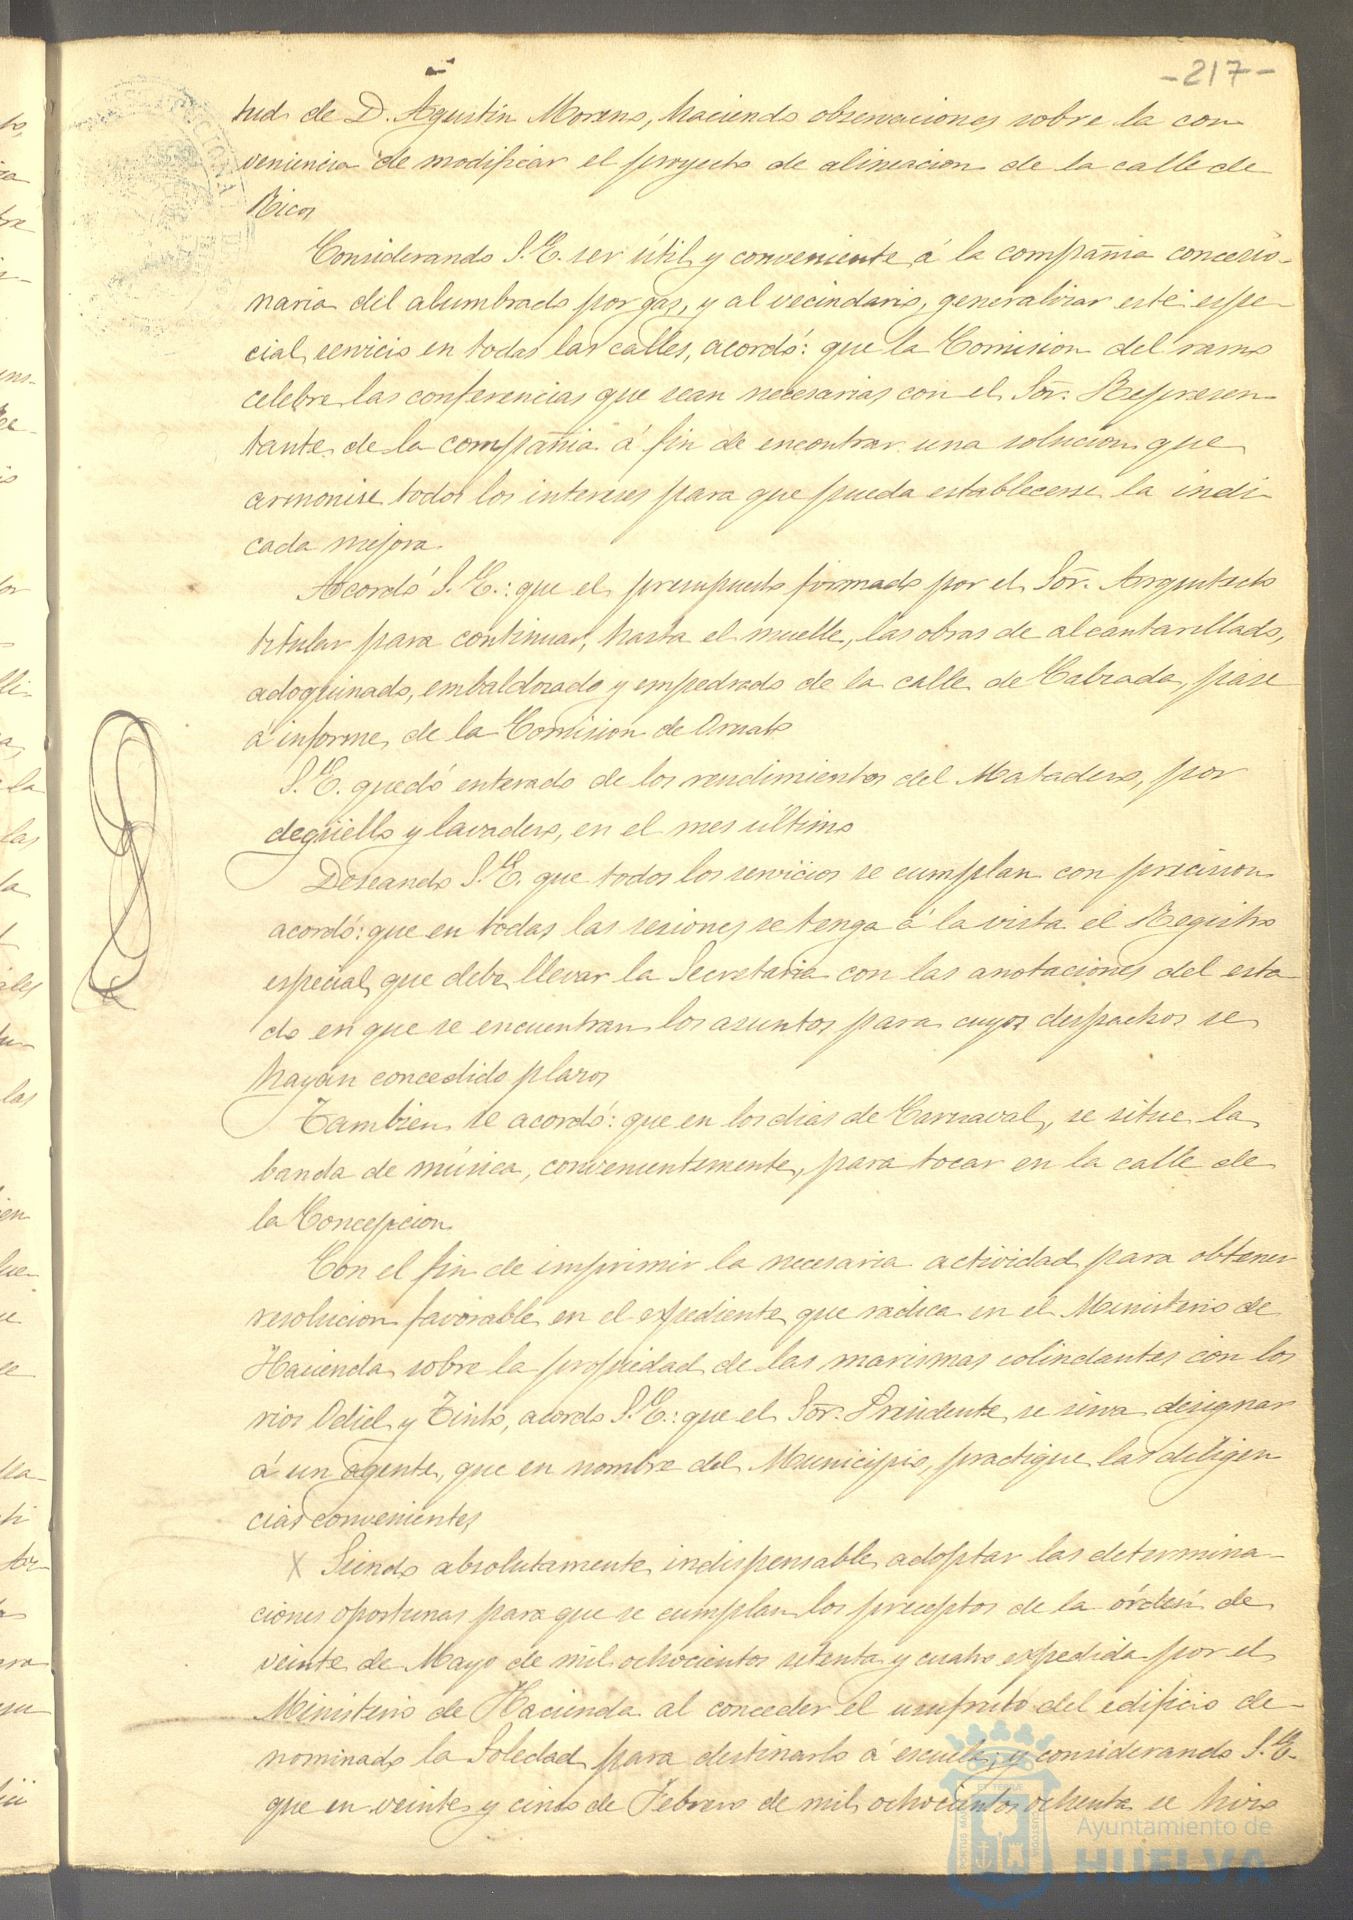 -217-
tud de D. Agustin Moreno, haciendo observaciones sobre la con
veniencia de modificar el proyecto de alineacion de la calle de
Ricos
Considerando S.E. ser útil y conveniente á la compañia concesio-
naria del alumbrado por gas, y al vecindario, generalizar este espe-
cial servicio en todas las calles, acordó: que la Comision del ramo
celebre las conferencias que sean necesarias con el Sor. Represen
tante de la compañia á fin de encontrar una solucion que
armonise todos los intereses para que pueda establecerse la indi-
cada mejora
Acordó S.E.: que el presupuesto formado por el Sor. Arquitecto
titular para continuar, hasta el muelle, las obras de alcantarillado,
adoquinado, embaldosado y empedrado de la calle de Calzada, pase
á informe de la Comision de Ornato
S.E. quedó enterado de los rendimientos del Matadero, por
degüello y lavadero, en el mes último
Deseando S.E. que todos los servicios se cumplan con precision
acordó: que en todas las sesiones se tenga á la vista el Registro
especial que debe llevar la Secretaria con las anotaciones del esta
do en que se encuentran los asuntos para cuyos despachos se
hayan concedido plazos
Tambien se acordó: que en los dias de Carnaval, se situe la
banda de música, convenientemente, para tocar en la calle de
la Concepcion
Con el fin de imprimir la necesaria actividad para obtener
resolucion favorable en el expediente que radica en el Ministerio de
Hacienda sobre la propiedad de las marismas colindantes con los
rios Odiel y Tinto, acordo S.E.: que el Sor. Presidente se sirva designar
á un agente, que en nombre del Municipio, practique las diligen
cias convenientes
X Siendo absolutamente indispensable adoptar las determina-
ciones oportunas para que se cumplan los preceptos de la órden de
veinte de Mayo de mil ochocientos setenta y cuatro expedida por el
Ministerio de Hacienda al conceder el usufruto del edificio de-
nominado la Soledad para destinarlo á escuela, y considerando S.E.
que en veinte y cinco de Febrero de mil ochocientos ochenta se hizo
Ayuntamiento de
HUELVA